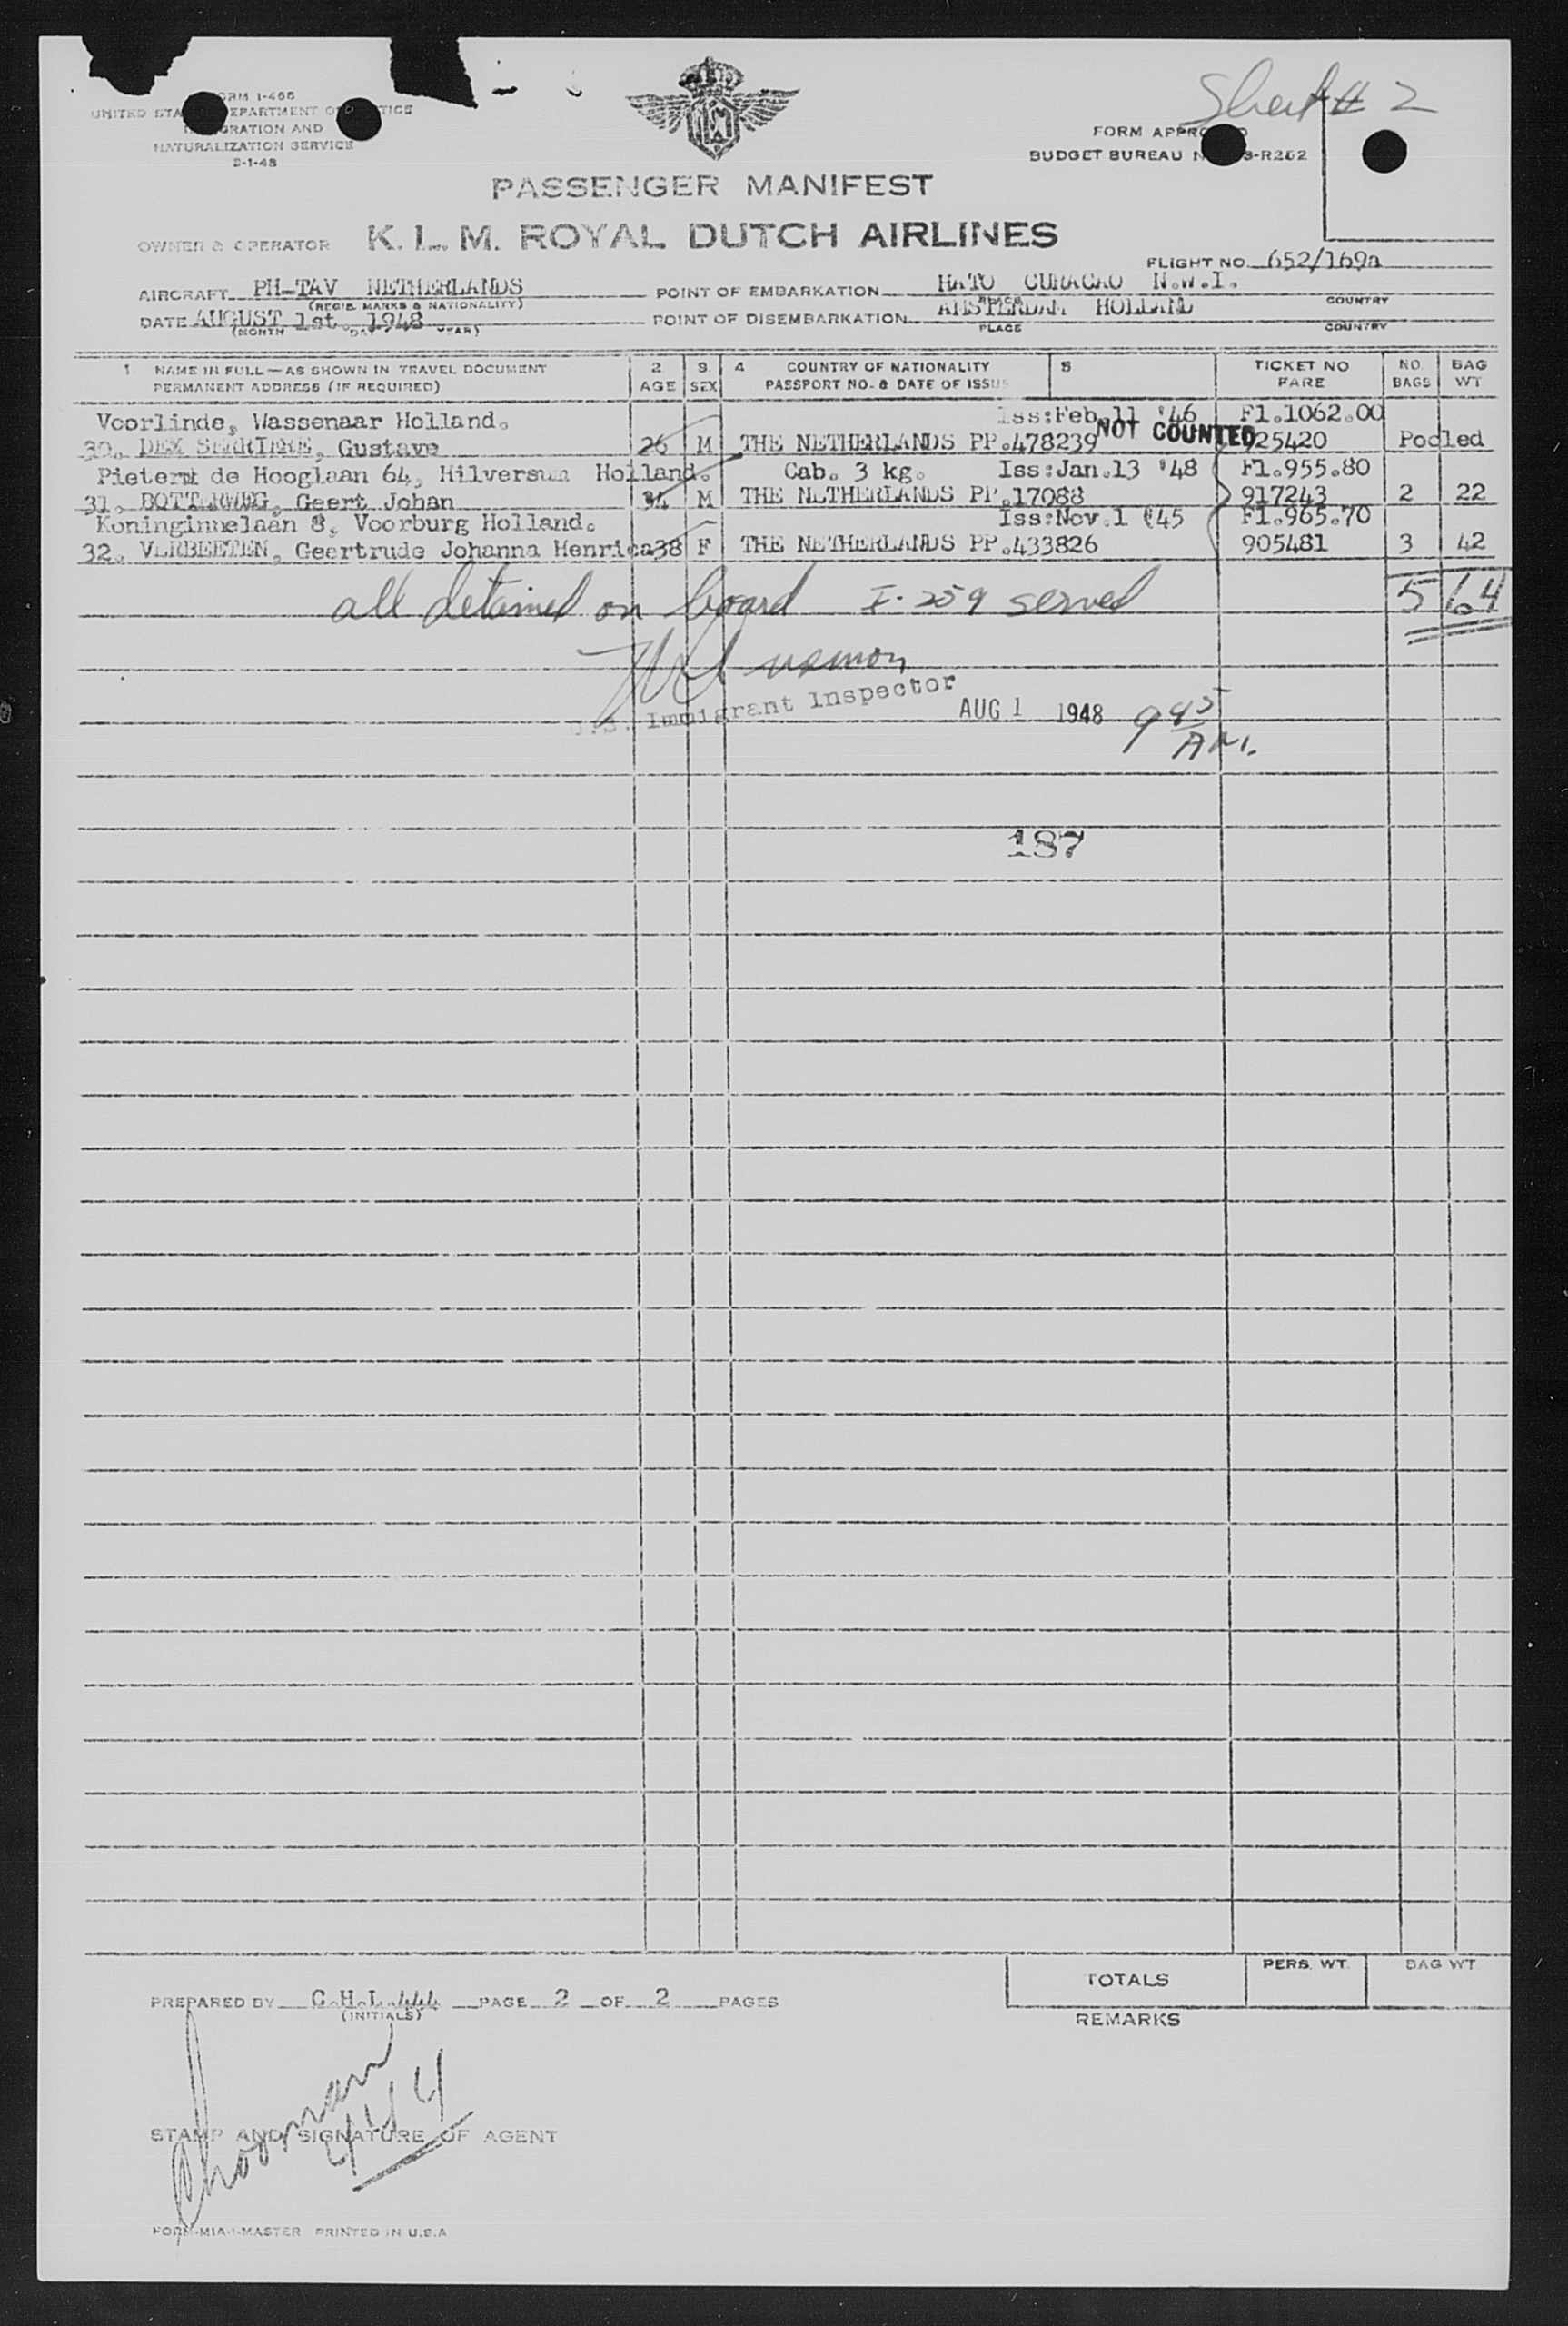 Sheet # 2
FORM I-466
UNITED STATES DEPARTMENT OF JUSTICE
IMMIGRATION AND
NATURALIZATION SERVICE
FORM APPROVED
BUDGET BUREAU -R262
KLM
PASSENGER MANIFEST
OWNER & OPERATOR K. L. M. ROYAL DUTCH AIRLINES
FLIGHT NO. 652/169a
AIRCRAFT PH-TAV NETHERLANDS POINT OF EMBARKATION HATO CURACAO N.W.I.
(REGIS. MARKS & NATIONALITY) PLACE COUNTRY
DATE AUGUST 1st. 1948 POINT OF DISEMBARKATION AMSTERDAM HOLLAND
(MONTH DAY YEAR) PLACE COUNTRY
1 NAME IN FULL — AS SHOWN IN TRAVEL DOCUMENT 2 3 4 COUNTRY OF NATIONALITY 5 TICKET NO NO. BAG
PERMANENT ADDRESS (IF REQUIRED) AGE SEX PASSPORT NO. & DATE OF ISSUE FARE BAGS WT
Voorlinde, Wassenaar Holland. Iss:Feb.11 '46 Fl.1062.00
NOT COUNTED
30. DEX SERRIERE, Gustave 26 M THE NETHERLANDS PP.478239 925420 Pooled
Pieterm de Hooglaan 64, Hilversum Holland. Cab. 3 kg. Iss:Jan.13 '48 Fl.955.80
31. BOTTERWEG, Geert Johan 34 M THE NETHERLANDS PP.17088 917243 2 22
Koninginnelaan 8, Voorburg Holland. Iss:Nov.1 '45 Fl.965.70
32. VERBEETEN, Geertrude Johanna Henrica 38 F THE NETHERLANDS PP.433826 905481 3 42
all detained on board I-259 served 5 64
U.S. Immigrant Inspector
AUG 1 1948 9 45 AM.
187
TOTALS PERS. WT. BAG WT
PREPARED BY C.H.L. 444 PAGE 2 OF 2 PAGES
(INITIALS)
REMARKS
444
STAMP AND SIGNATURE OF AGENT
FORM-MIA-1-MASTER PRINTED IN U.S.A